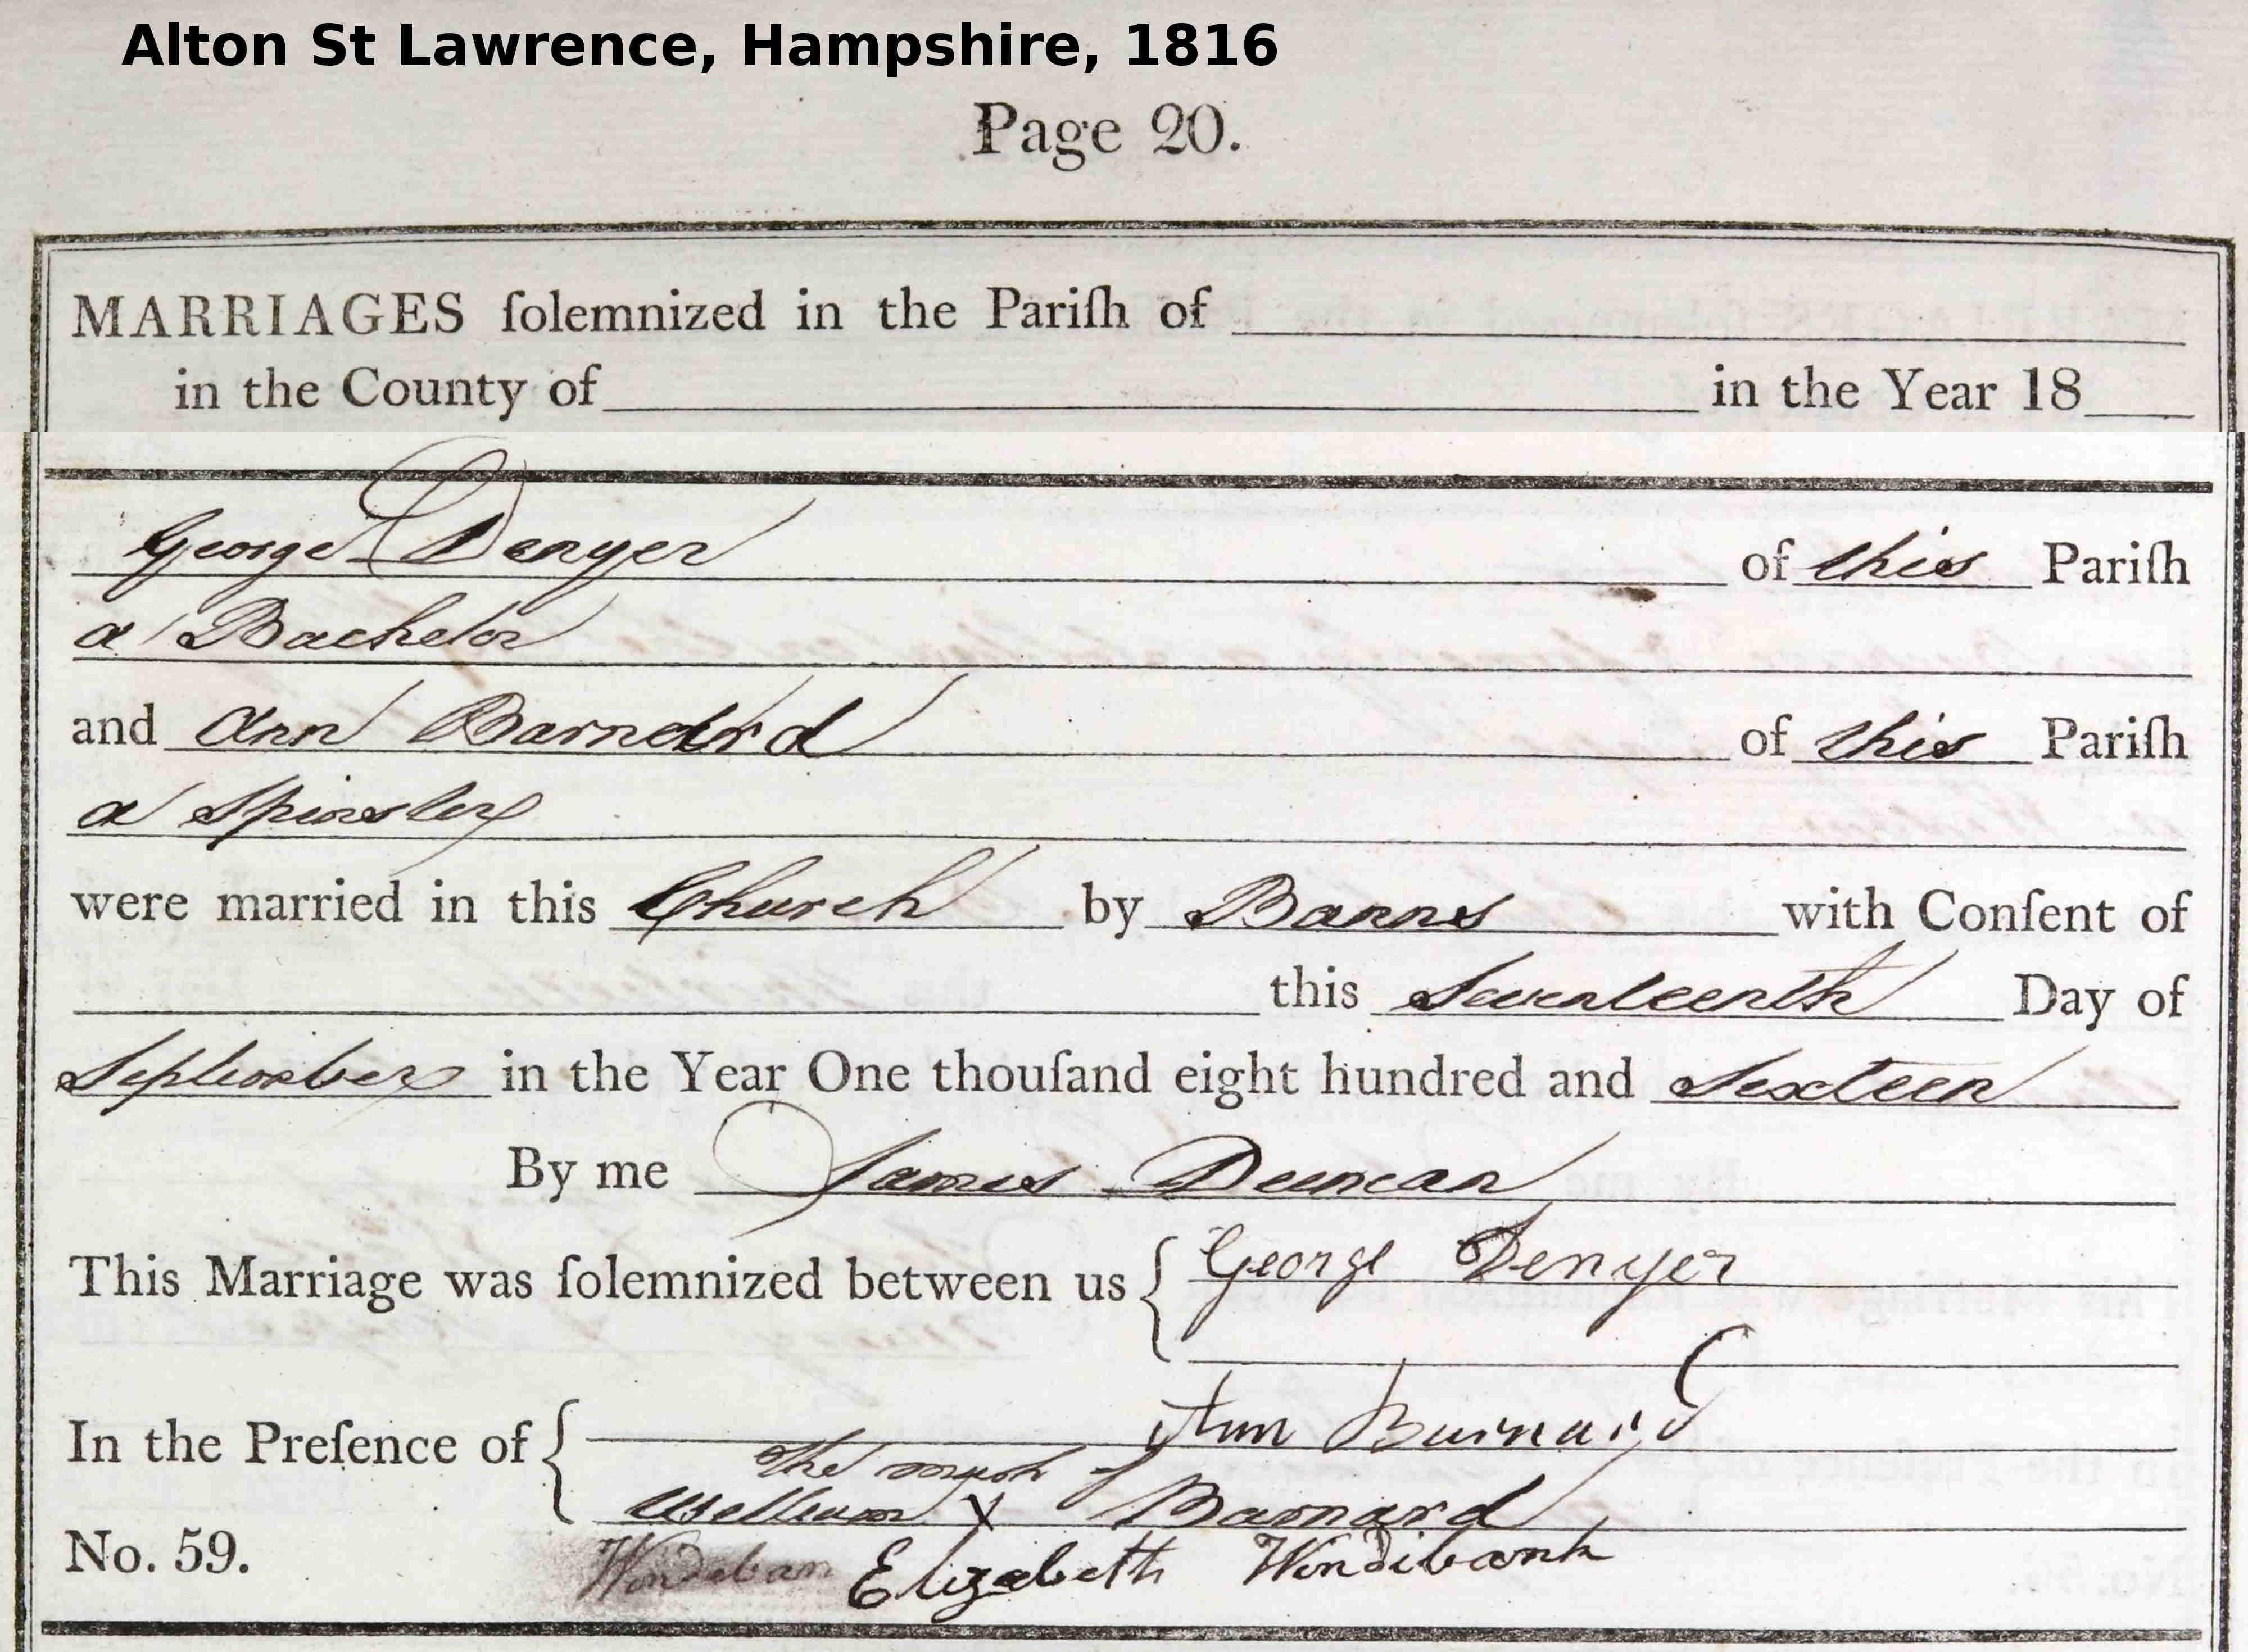 Alton St Lawrence, Hampshire, 1816
Page 20.
MARRIAGES ſolemnized in the Pariſh of
in the County of in the Year 18
George Denyer of this Pariſh
a Bachelor
and Ann Barnard of this Pariſh
a Spinster
were married in this Church by Banns with Conſent of
this Seventeenth Day of
September in the Year One thouſand eight hundred and Sixteen
By me James Duncan
This Marriage was ſolemnized between us { George Denyer
Ann Burnard
In the Preſence of {
The mark of
William X Barnard
No. 59. Windeban Elizabeth Windibank